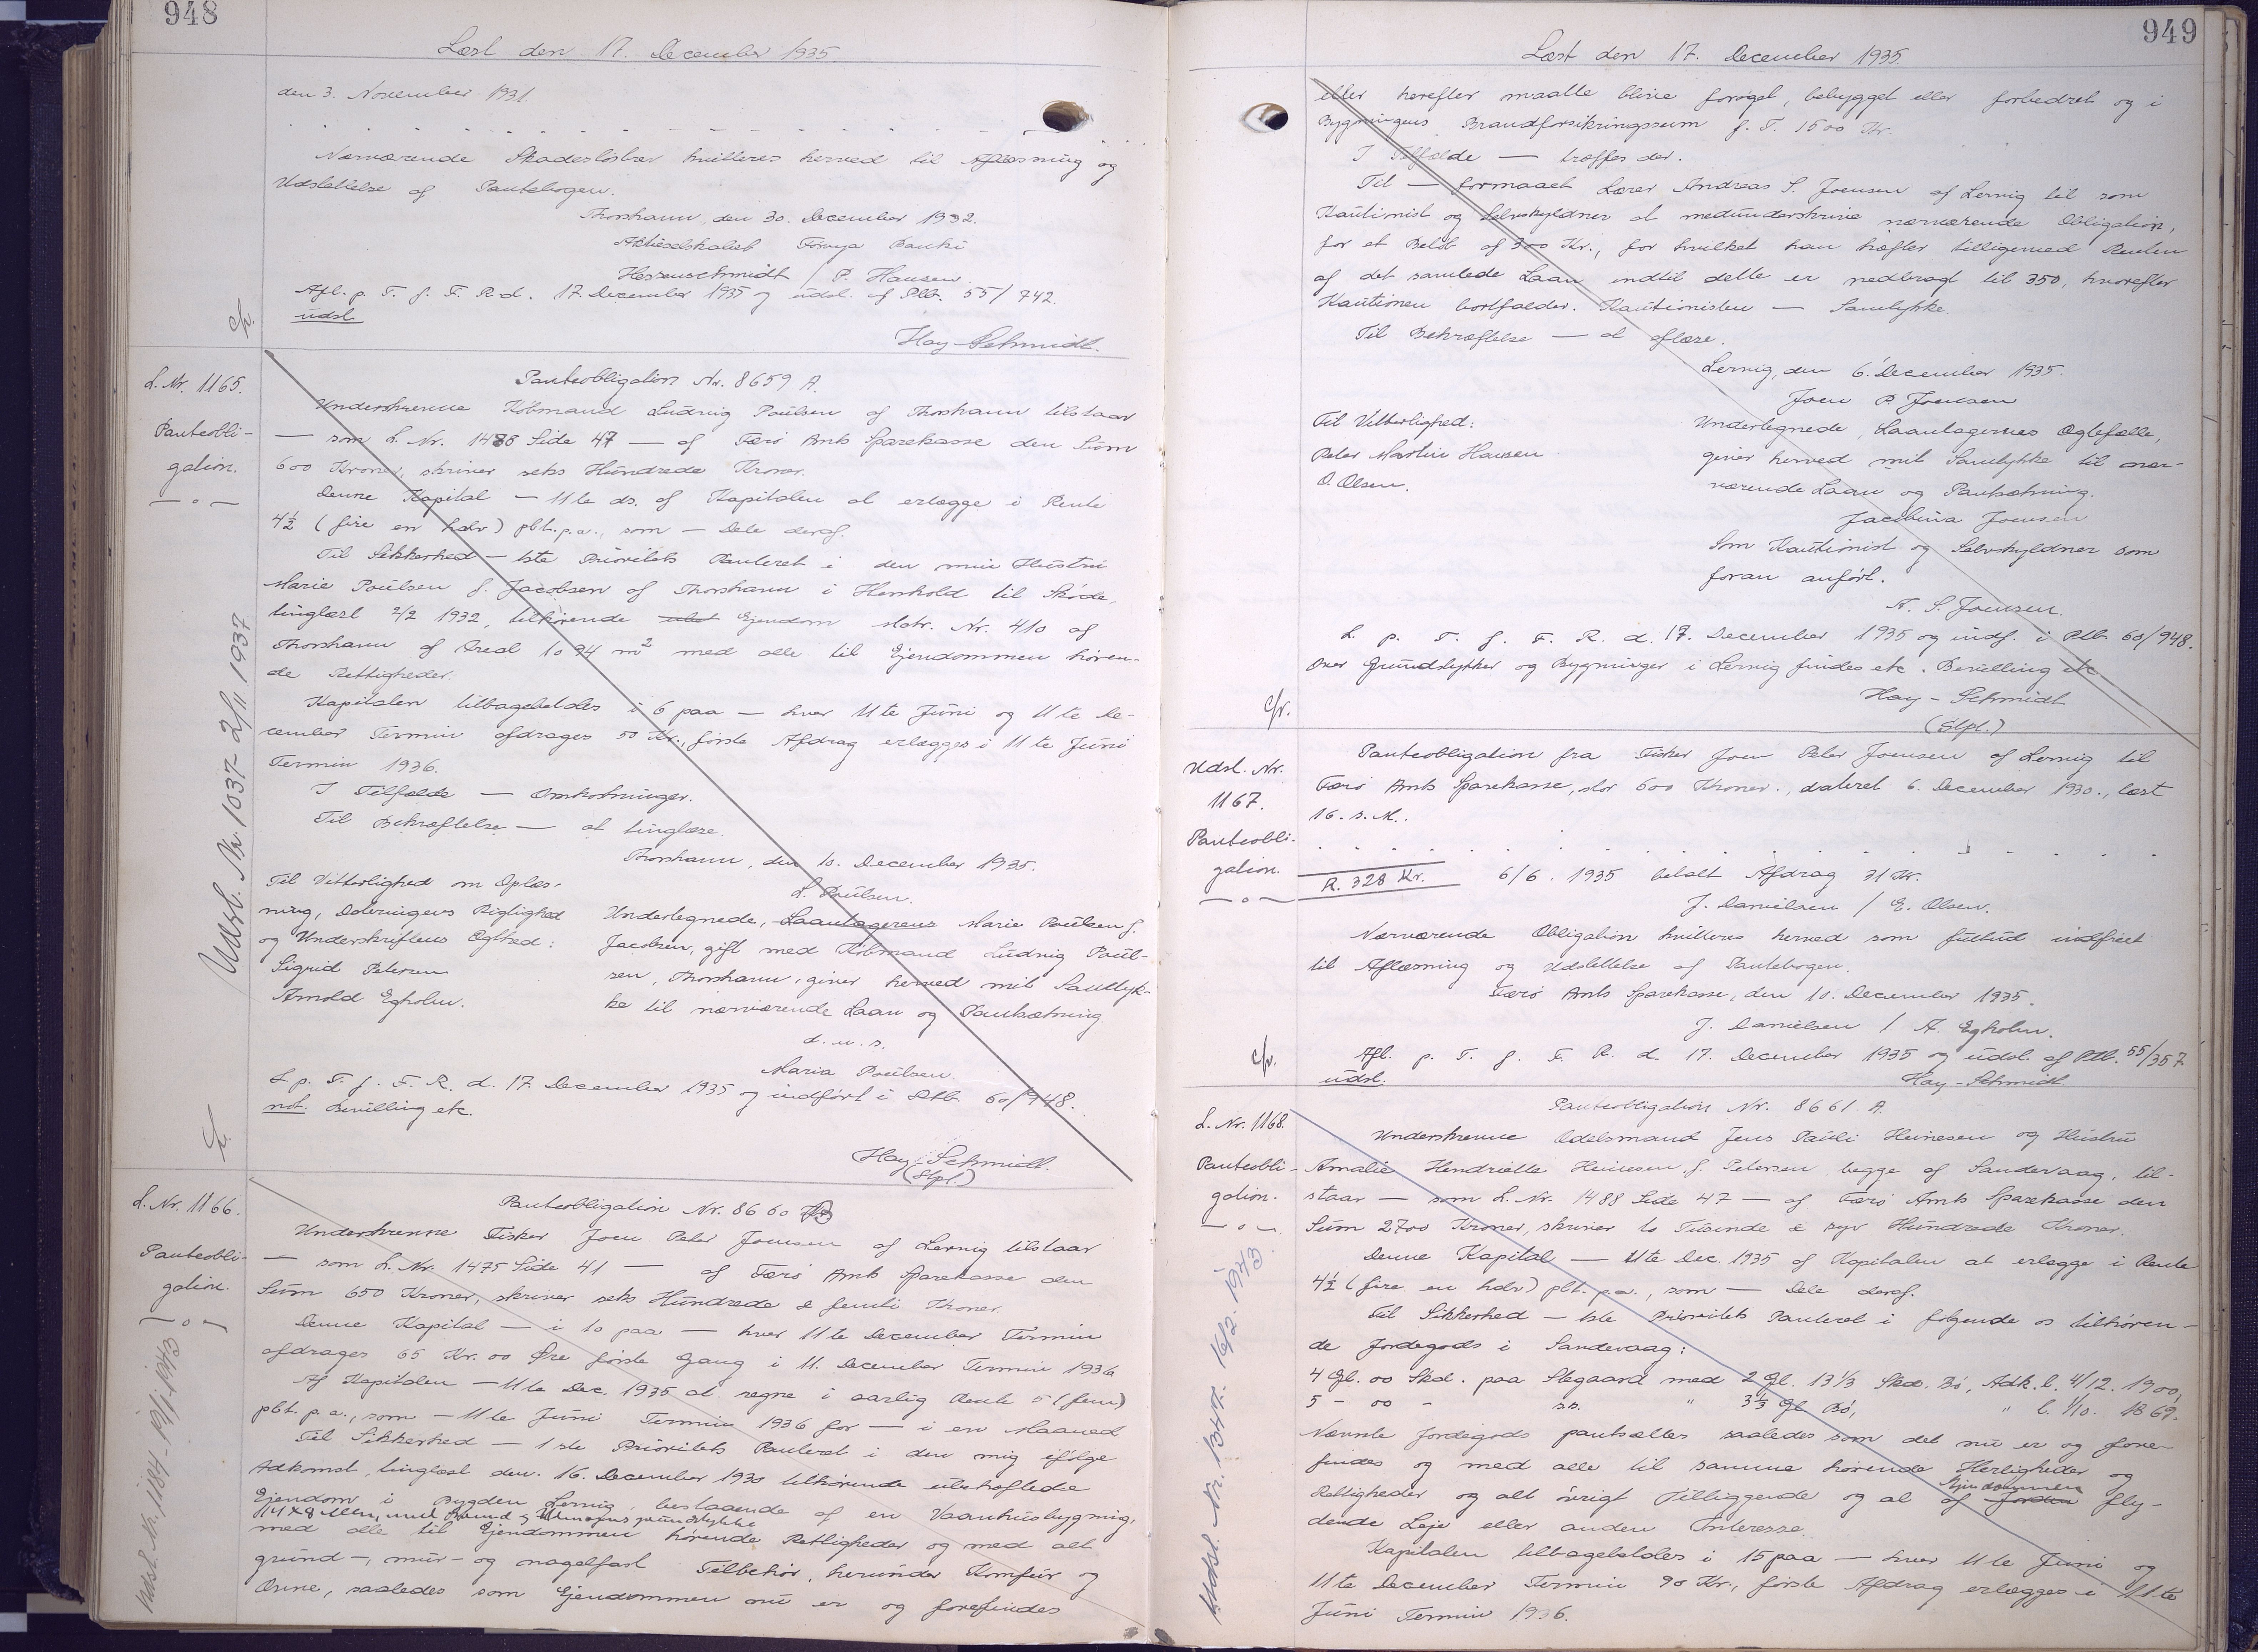 948
Læst den 17. December 1935.
den 3. November 1931.
Nærværende Skadesløsbrev kvitteres herved til Aflæsning og
Udslettelse af Pantebogen.
Thorshavn, den 30. December 1932.
Aktieselskabet Føroya Banki
P. Hansen.
Afl. p. T. f. F. R. d. 17. December 1935 og udsl. af Ptb. 55/742.
udsl.
Hay-Schmidt.
L. Nr. 1165.
Panteobli-
gation.
Udsl. Nr. 1037 - 2/11 1937
Panteobligation Nr. 8659 A.
Underskrevne Købmand Ludvig Poulsen af Thorshavn tilstaar
— som L. Nr. 1486 Side 47 — af Færø Amts Sparekasse den Sum
600 Kroner, skriver seks Hundrede Kroner.
Denne Kapital — 11te ds. af Kapitalen at erlægge i Rente
4½ (fire en halv) pCt. p.a., som — Dele deraf.
Til Sikkerhed — 1ste Prioritets Panteret i den min Hustru
Marie Poulsen f. Jacobsen af Thorshavn i Henhold til Skøde,
tinglæst 2/2 1932, tilhørende Ejendom Matr. Nr. 410 af
Thorshavn af Areal 1094 m² med alle til Ejendommen høren-
de Rettigheder.
Kapitalen tilbagebetales i 6 paa — hver 11te Juni og 11te De-
cember Termin afdrages 50 Kr., første Afdrag erlægges i 11te Juni
Termin 1936.
I Tilfælde — Omkostninger.
Til Bekræftelse — at tinglæse.
Thorshavn, den 10. December 1935.
L. Poulsen.
Til Vitterlighed om Oplæs-
ning, Dateringens Rigtighed
og Underskriftens Ægthed:
Sigrid Petersen
Arnold Egholm.
Undertegnede, Laantagerens Marie Poulsen f.
Jacobsen, gift med Købmand Ludvig Poul-
sen, Thorshavn, giver herved mit Samtyk-
ke til nærværende Laan og Pantsætning
d. u. s.
Maria Poulsen.
L. p. T. f. F. R. d. 17. December 1935 og indført i Ptb. 60/948.
not. Bevilling etc.
Hay-Schmidt.
(Stpl.)
L. Nr. 1166.
Panteobli-
gation.
Udsl. Nr. 1184 - 19/1 1943
Panteobligation Nr. 8660 B
Underskrevne Fisker Joen Peter Joensen af Lervig tilstaar
— som L. Nr. 1475 Side 41 — af Færø Amts Sparekasse den
Sum 650 Kroner, skriver seks Hundrede & femti Kroner.
Denne Kapital — i 10 paa — hver 11te December Termin
afdrages 65 Kr. 00 Øre første Gang i 11. December Termin 1936
Af Kapitalen — 11te Dec. 1935 at regne i aarlig Rente 5 (fem)
pCt. p.a., som — 11te Juni Termin 1936 for — i en Maaned
Til Sikkerhed — 1ste Prioritets Panteret i den mig ifølge
Adkomst, tinglæst den. 16. December 1930 tilhørende ubehæftede
Ejendom i Bygden Lervig, bestaaende af en Vaanhusbygning,
med Grund
med alle til Ejendommen hørende Rettigheder og med alt
grund-, mur- og nagelfast Tilbehør, herunder Komfur og
Ovne, saaledes som Ejendommen nu er og forefindes
949
Læst den 17. December 1935.
eller herefter maatte blive forøget, bebygget eller forbedret og i
Bygningens Brandforsikringssum f. T. 1500 Kr.
I Tilfælde — træffes der.
Til — formaaet Lærer Andreas S. Joensen af Lervig til som
Kautionist og Selvskyldner at medunderskrive nærværende Obligation,
for et Beløb af 300 Kr., for hvilket han hæfter tilligemed Renten
af det samlede Laan indtil dette er nedbragt til 350, hvorefter
Kautionen bortfalder. Kautionisten — Samtykke.
Til Bekræftelse — at aflæse.
Lervig, den 6. December 1935.
Joen P. Joensen
Til Vitterlighed:
Peter Martin Hansen
O. Olsen.
Undertegnede, Laantagernes Ægtefælle,
giver herved mit Samtykke til nær-
værende Laan og Pantsætning.
Jacobina Joensen
Som Kautionist og Selvskyldner som
foran anført.
A. S. Joensen.
L. p. T. f. F. R. d. 17. December 1935 og indf. i Ptb. 60/948.
Over Grundstykker og Bygninger i Lervig findes etc. Bevilling etc.
Hay-Schmidt
(Stpl.)
Udsl. Nr.
1167.
Panteobli-
gation.
Panteobligation fra Fisker Joen Peter Joensen af Lervig til
Færø Amts Sparekasse, stor 600 Kroner., dateret 6. December 1930., læst
16. s. M.
R. 328 Kr. 6/6. 1935 betalt Afdrag 31 Kr.
J. Danielsen / E. Olsen.
Nærværende Obligation kvitteres herved som fuldtud indfriet
til Aflæsning og Udslettelse af Pantebogen.
Færø Amts Sparekasse, den 10. December 1935.
J. Danielsen / A. Egholm.
Afl. p. T. f. F. R. d. 17. December 1935 og udsl. af Ptb. 55/357
udsl.
Hay-Schmidt
L. Nr. 1168.
Panteobli-
gation.
Udsl. Nr. 1347. 16/2. 1943
Panteobligation Nr. 8661 A.
Underskrevne Odelsmand Jens Pauli Heinesen og Hustru
Amalie Hendriette Heinesen f. Petersen begge af Sandevaag, til-
staar — som L. Nr. 1488 Side 47 — af Færø Amts Sparekasse den
Sum 2700 Kroner, skriver to Tusinde & syv Hundrede Kroner.
Denne Kapital — 11te Dec. 1935 af Kapitalen at erlægge i Rente
4½ (fire en halv) pCt. p.a., som — Dele deraf.
Til Sikkerhed — 1ste Prioritets Panteret i følgende os tilhøren-
de Jordegods i Sandevaag:
4 Gl. 00 Skd. paa Slegaard med 2 Gl. 13 1/3 Skd. Bø, Adk. l. 4/12. 1900,
5 - 00 - sn. " 3 1/3 Gl Bø, " l. 1/10. 1869.
Nævnte Jordegods pantsættes saaledes som det nu er og fore-
findes og med alle til samme hørende Herligheder og
Ejendommen
Rettigheder og alt øvrigt Tilliggende og al af Jorden fly-
dende Leje eller anden Interesse.
Kapitalen tilbagebetales i 15 paa — hver 11te Juni og
11te December Termin 90 Kr., første Afdrag erlægges i 11te
Juni Termin 1936.